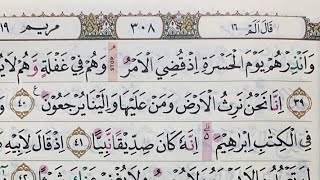 قَالَ اَلَمْ ١٦ ٣٠٨ مريم ١٩
وَاَنْذِرْهُمْ يَوْمَ الْحَسْرَةِ اِذْ قُضِيَ الْاَمْرُ وَهُمْ فِيْ غَفْلَةٍ وَّهُمْ لَا
٣٩ اِنَّا نَحْنُ نَرِثُ الْاَرْضَ وَمَنْ عَلَيْهَا وَاِلَيْنَا يُرْجَعُوْنَ ࣖ ٤٠
فِى الْكِتٰبِ اِبْرٰهِيْمَ اِنَّهٗ كَانَ صِدِّيْقًا نَّبِيًّا ٤١ اِذْ قَالَ لِاَبِيْهِ